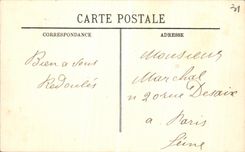 CARTE POSTALE
CORRESPONDANCE
ADRESSE
Bien a vous
Redoulés
Monsieur
Marchal
n 20 rue Desaix
a Paris
Seine